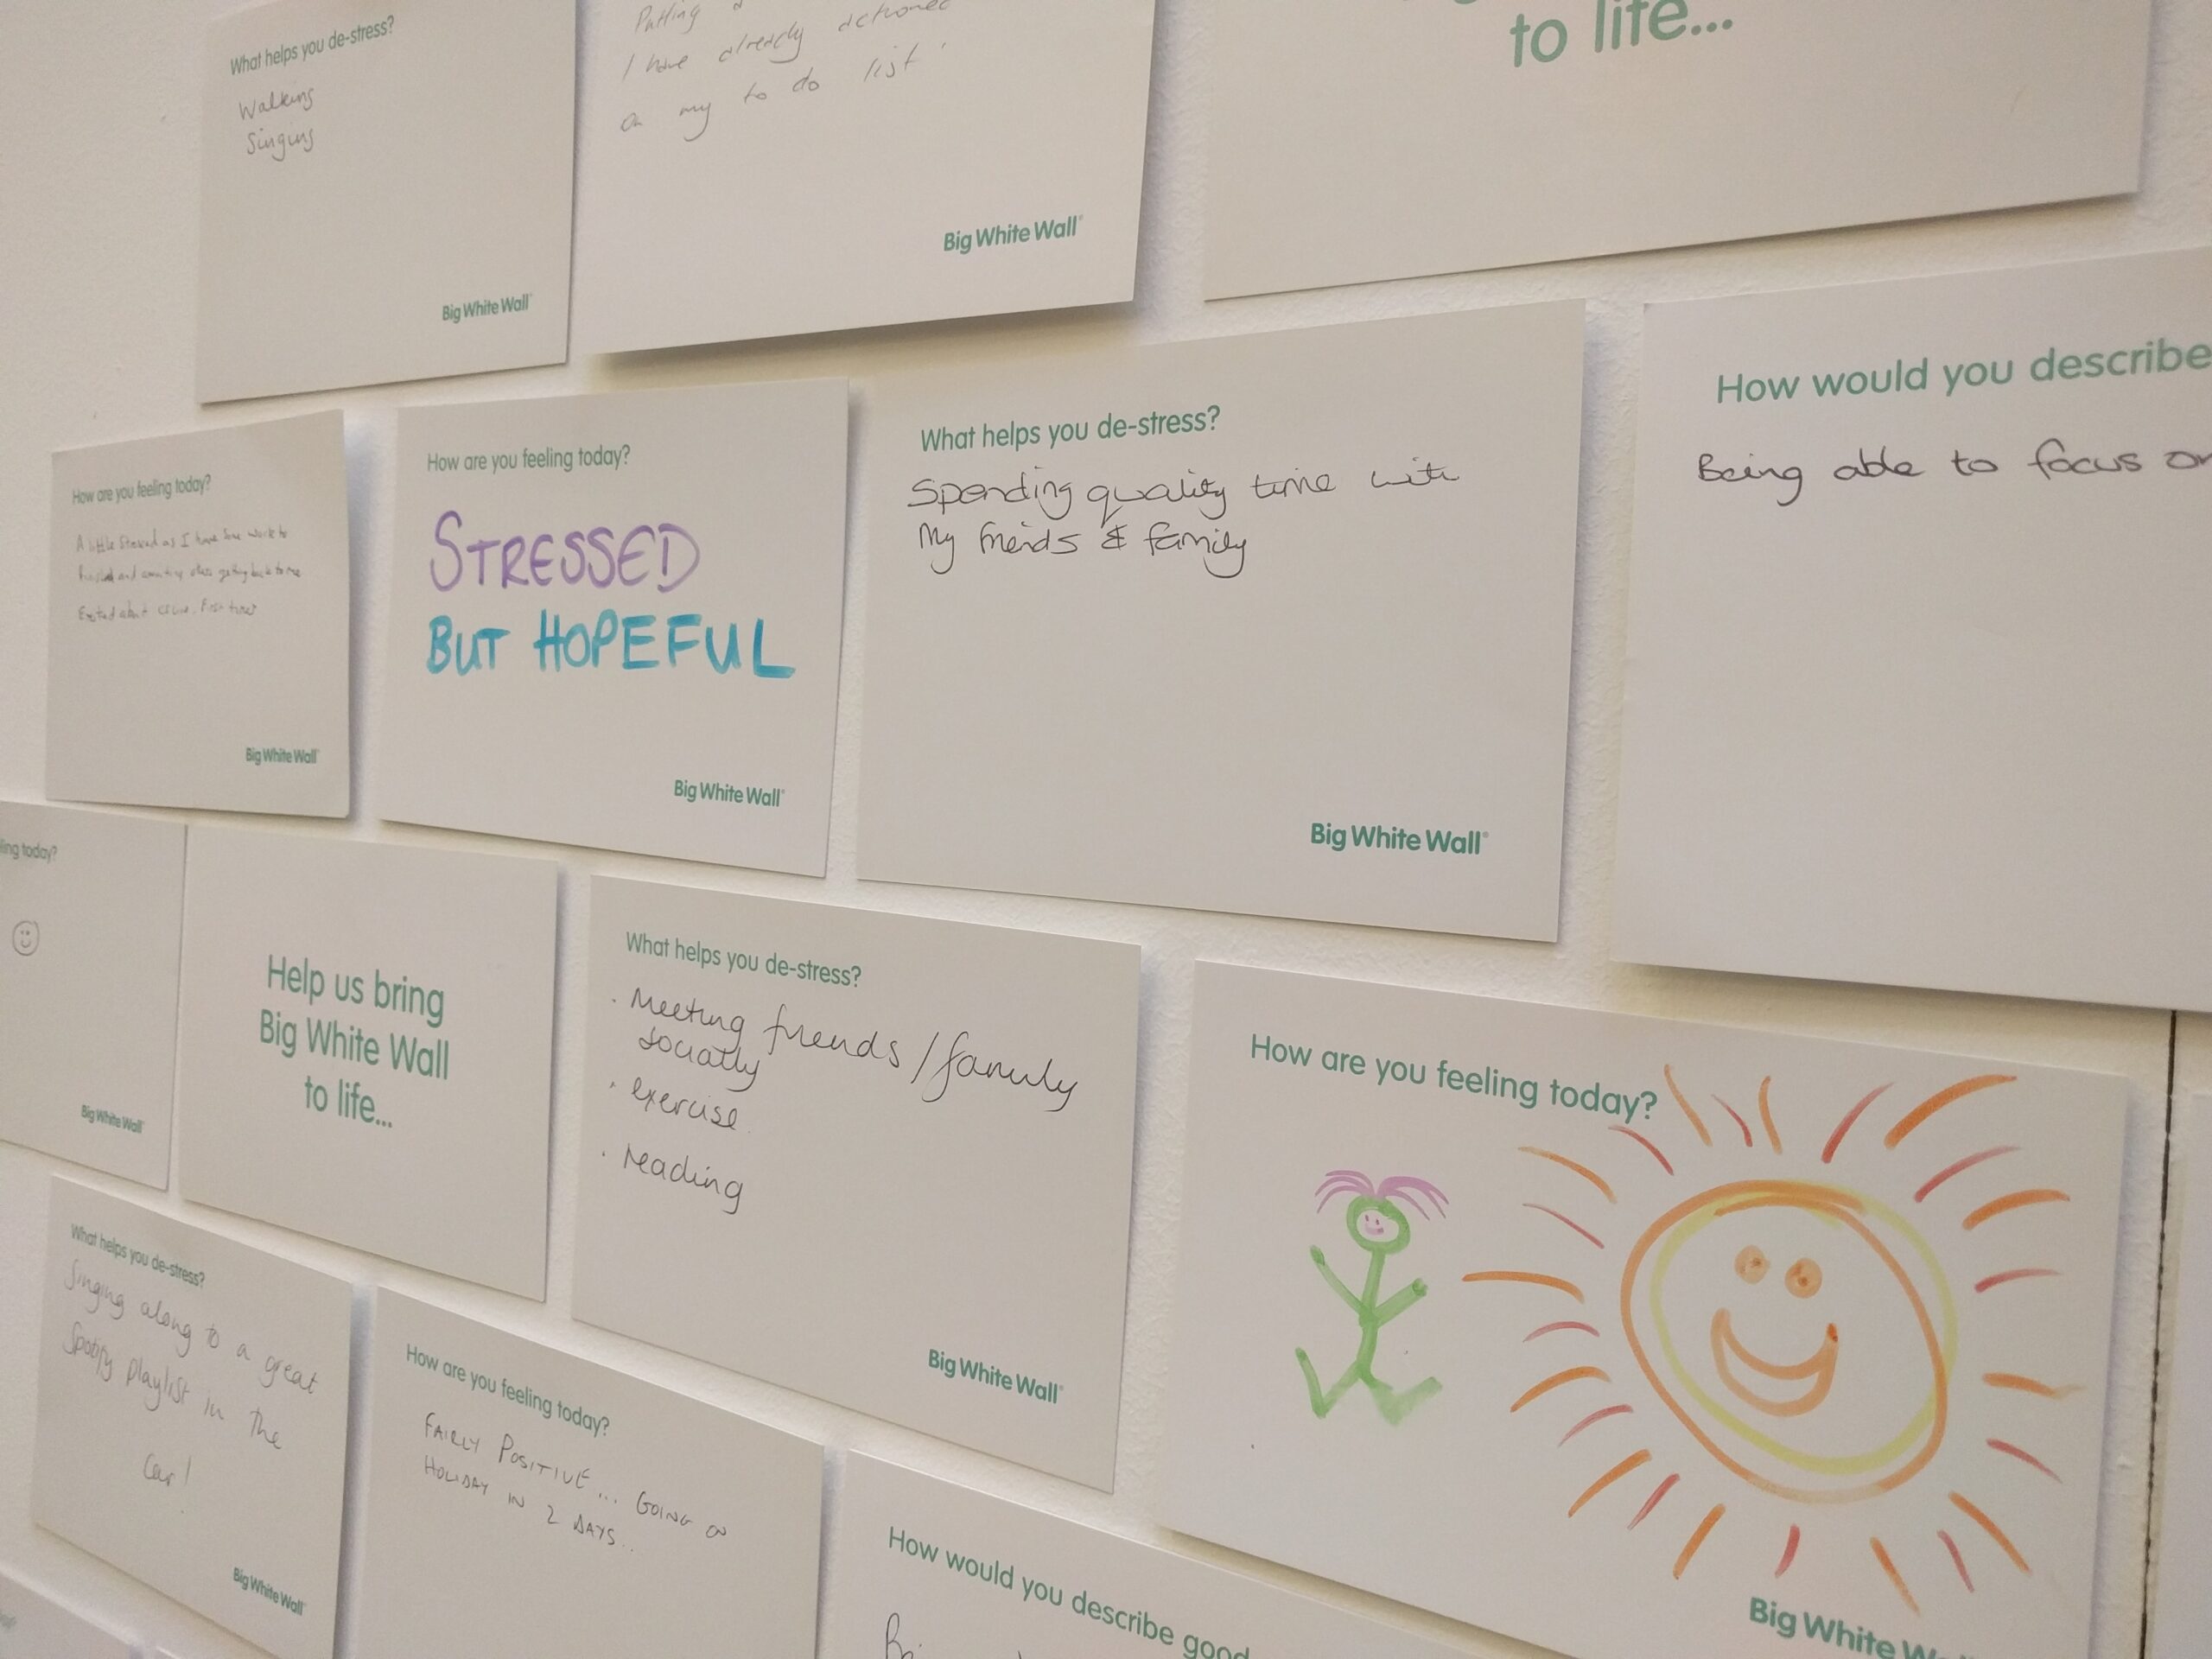 What helps you de-stress?
Walking
Singing
Big White Wall
Putting
I have already actioned
on my to do list
Big White Wall
to life...
How are you feeling today?
A little stressed as I have some work to
and getting back to me
Excited about
Big White Wall
How are you feeling today?
STRESSED
BUT HOPEFUL
Big White Wall
What helps you de-stress?
Spending quality time with
My friends & family
Big White Wall
How would you describe
Being able to focus on
ling today?
Big White Wall
Help us bring
Big White Wall
to life...
What helps you de-stress?
· Meeting friends / family
socially
· exercise
· reading
Big White Wall
How are you feeling today?
Big White
What helps you de-stress?
Singing along to a great
Spotify playlist in the
Car!
Big White Wall
How are you feeling today?
FAIRLY POSITIVE... GOING ON
HOLIDAY IN 2 DAYS...
How would you describe good